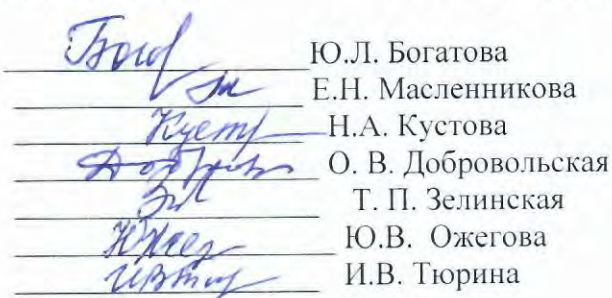 Ю.Л. Богатова
Е.Н. Масленникова
Н.А. Кустова
О. В. Добровольская
Т. П. Зелинская
Ю.В. Ожегова
И.В. Тюрина